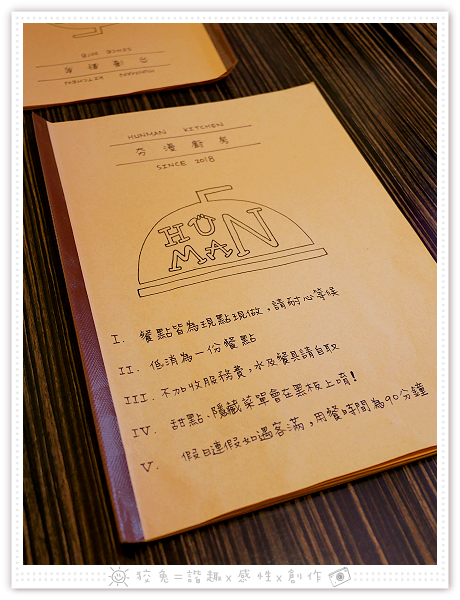 SINCE 2018
夯漫廚房
HUNMAN KITCHEN
HUNMAN KITCHEN
夯漫廚房
SINCE 2018
HUN
MAN
I. 餐點皆為現點現做,請耐心等候
II. 低消為一份餐點
III. 不加收服務費,水及餐具請自取
IV. 甜點、隱藏菜單會在黑板上唷!
V. 假日連假如遇客滿,用餐時間為90分鐘
狡兔=諧趣x感性x創作